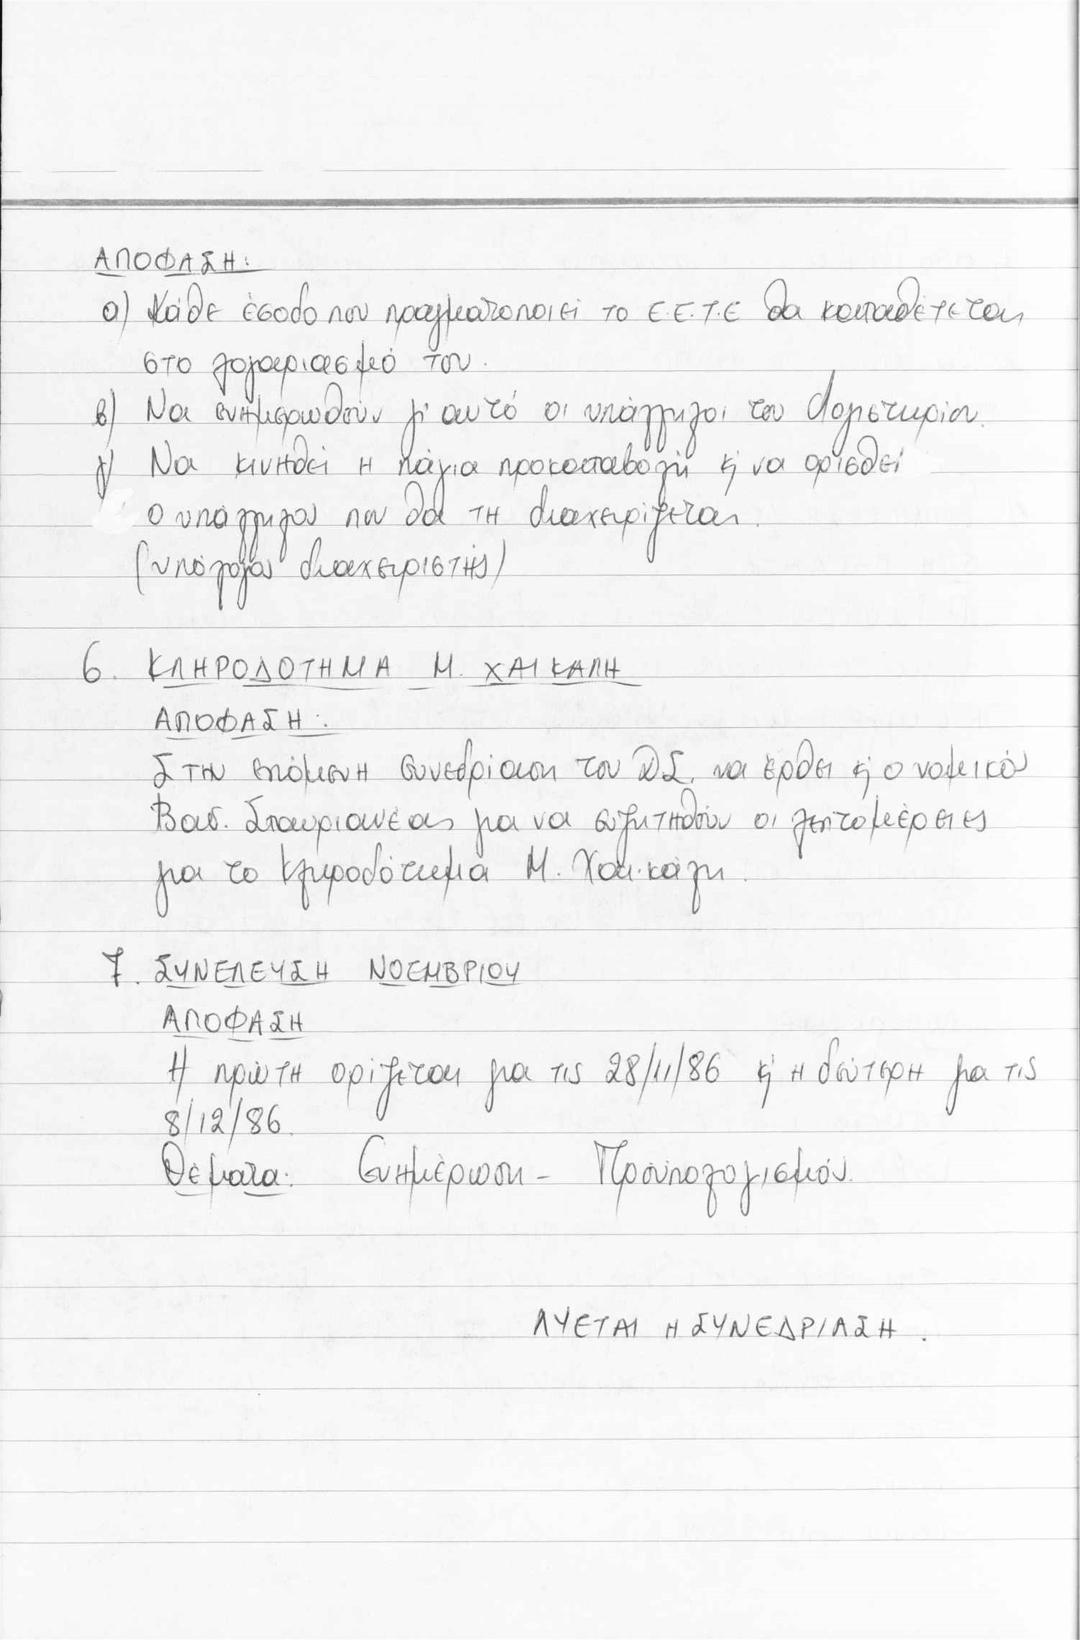 ΑΠΟΦΑΣΗ:
α) Κάθε έσοδο που πραγματοποιεί το Ε.Ε.Τ.Ε θα καταθέτεται
στο λογαριασμό του.
β) Να ενημερωθούν γι αυτό οι υπάλληλοι του Λογιστηρίου.
γ) Να κινηθεί η πάγια προκαταβολή κ' να ορισθεί
ο υπάλληλος που θα τη διαχειρίζεται.
(υπόλογος διαχειριστής)
6. ΚΛΗΡΟΔΟΤΗΜΑ Μ. ΧΑΙΚΑΛΗ
ΑΠΟΦΑΣΗ:
Στην επόμενη συνεδρίαση του Δ.Σ. να έρθει κ' ο νομικός
Βασ. Σταυριανέας για να συζητηθούν οι λεπτομέρειες
για το κληροδότημα Μ. Χαικάλη.
7. ΣΥΝΕΛΕΥΣΗ ΝΟΕΜΒΡΙΟΥ
ΑΠΟΦΑΣΗ
Η πρώτη ορίζεται για τις 28/11/86 κ' η δεύτερη για τις
8/12/86.
Θέματα: Ενημέρωση - Προϋπολογισμός.
ΛΥΕΤΑΙ Η ΣΥΝΕΔΡΙΑΣΗ.